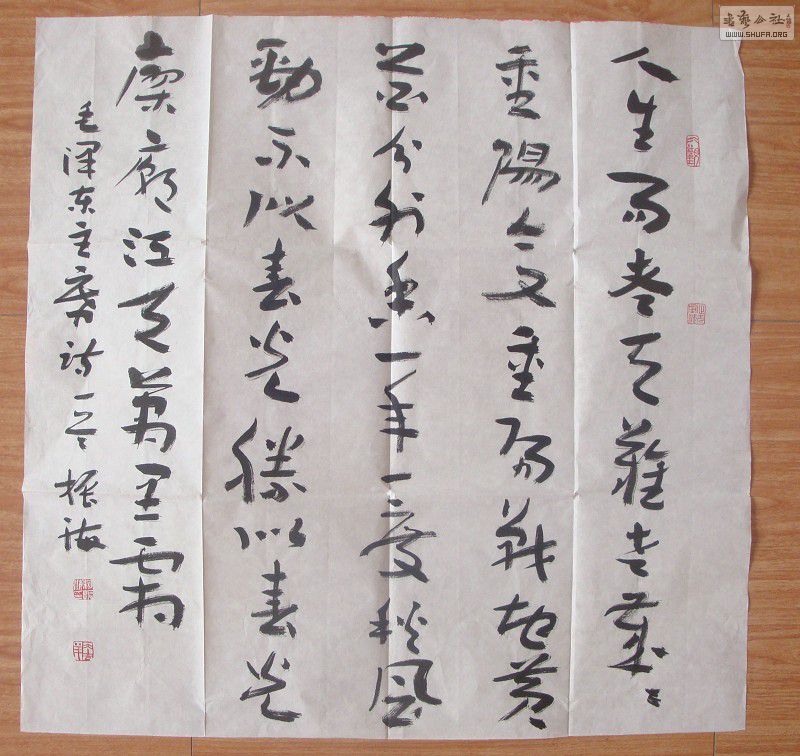 人生易老天難老歲々
重陽今又重陽戰地黄
花分外香一年一度秋風
勁不似春光勝似春光
寥廓江天萬里霜
毛泽东主席诗一首 振海
书艺公社
WWW.SHUFA.ORG